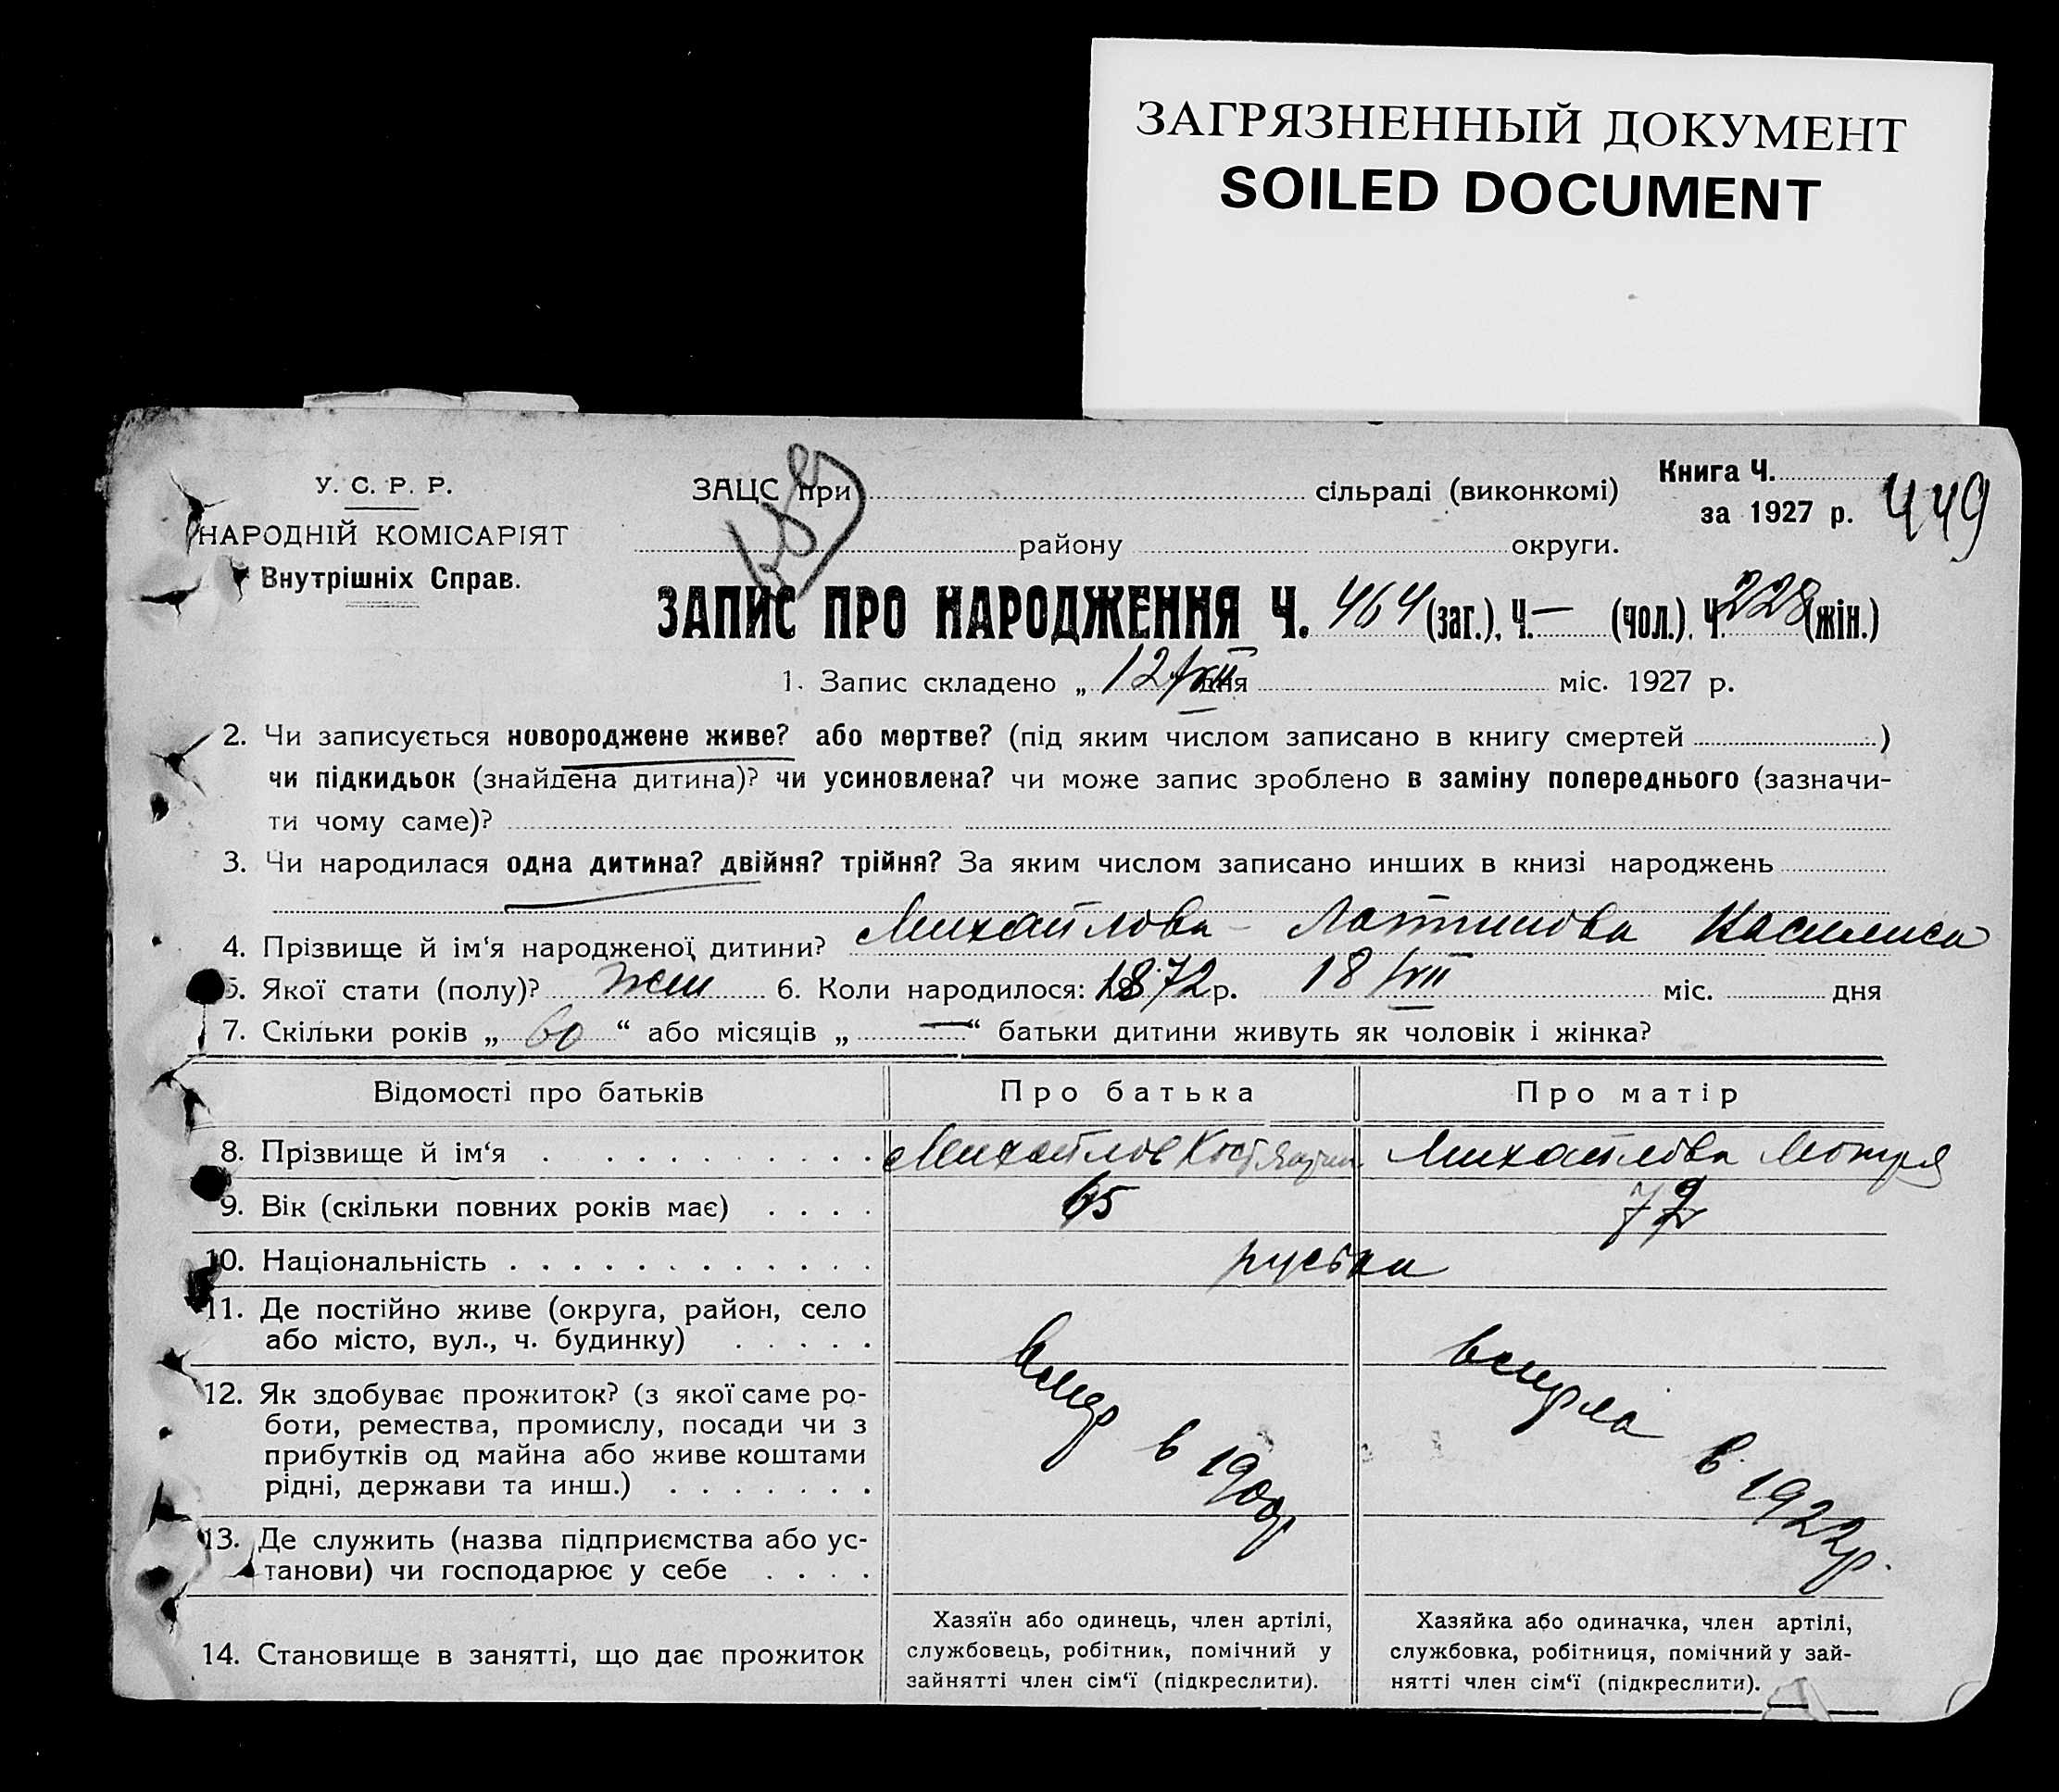 ЗАГРЯЗНЕННЫЙ ДОКУМЕНТ
SOILED DOCUMENT
У. С. Р. Р.
НАРОДНІЙ КОМІСАРІЯТ
Внутрішніх Справ.
ЗАЦС при сільраді (виконкомі)
району округи.
Книга Ч.
за 1927 р. 449
ЗАПИС ПРО НАРОДЖЕННЯ Ч. 464 (заг.), Ч. — (чол.), Ч. 228 (жін.)
1. Запис складено „ 12/XII дня міс. 1927 р.
2. Чи записується новороджене живе? або мертве? (під яким числом записано в книгу смертей )
чи підкидьок (знайдена дитина)? чи усиновлена? чи може запис зроблено в заміну попереднього (зазначи-
ти чому саме)?
3. Чи народилася одна дитина? двійня? трійня? За яким числом записано инших в книзі народжень
4. Прізвище й ім‘я народженої дитини? Михайлова - Логтинова Василиса
5. Якої стати (полу)? жін 6. Коли народилося: 1872 р. 18/VII міс. дня
7. Скільки років „ 60 “ або місяців „ — “ батьки дитини живуть як чоловік і жінка?
Відомості про батьків Про батька Про матір
8. Прізвище й ім‘я Михайлов Михайлова Мотря
9. Вік (скільки повних років має) 65 72
10. Національність руськи
11. Де постійно живе (округа, район, село
або місто, вул., ч. будинку)
вмер в 1900р
вмерла в 1922р.
12. Як здобуває прожиток? (з якої саме ро-
боти, ремества, промислу, посади чи з
прибутків од майна або живе коштами
рідні, держави та инш.)
13. Де служить (назва підприємства або ус-
танови) чи господарює у себе
14. Становище в занятті, що дає прожиток
Хазяїн або одинець, член артілі,
службовець, робітник, помічний у
зайнятті член сім‘ї (підкреслити).
Хазяйка або одиначка, член артілі,
службовка, робітниця, помічний у зай-
нятті член сім‘ї (підкреслити).